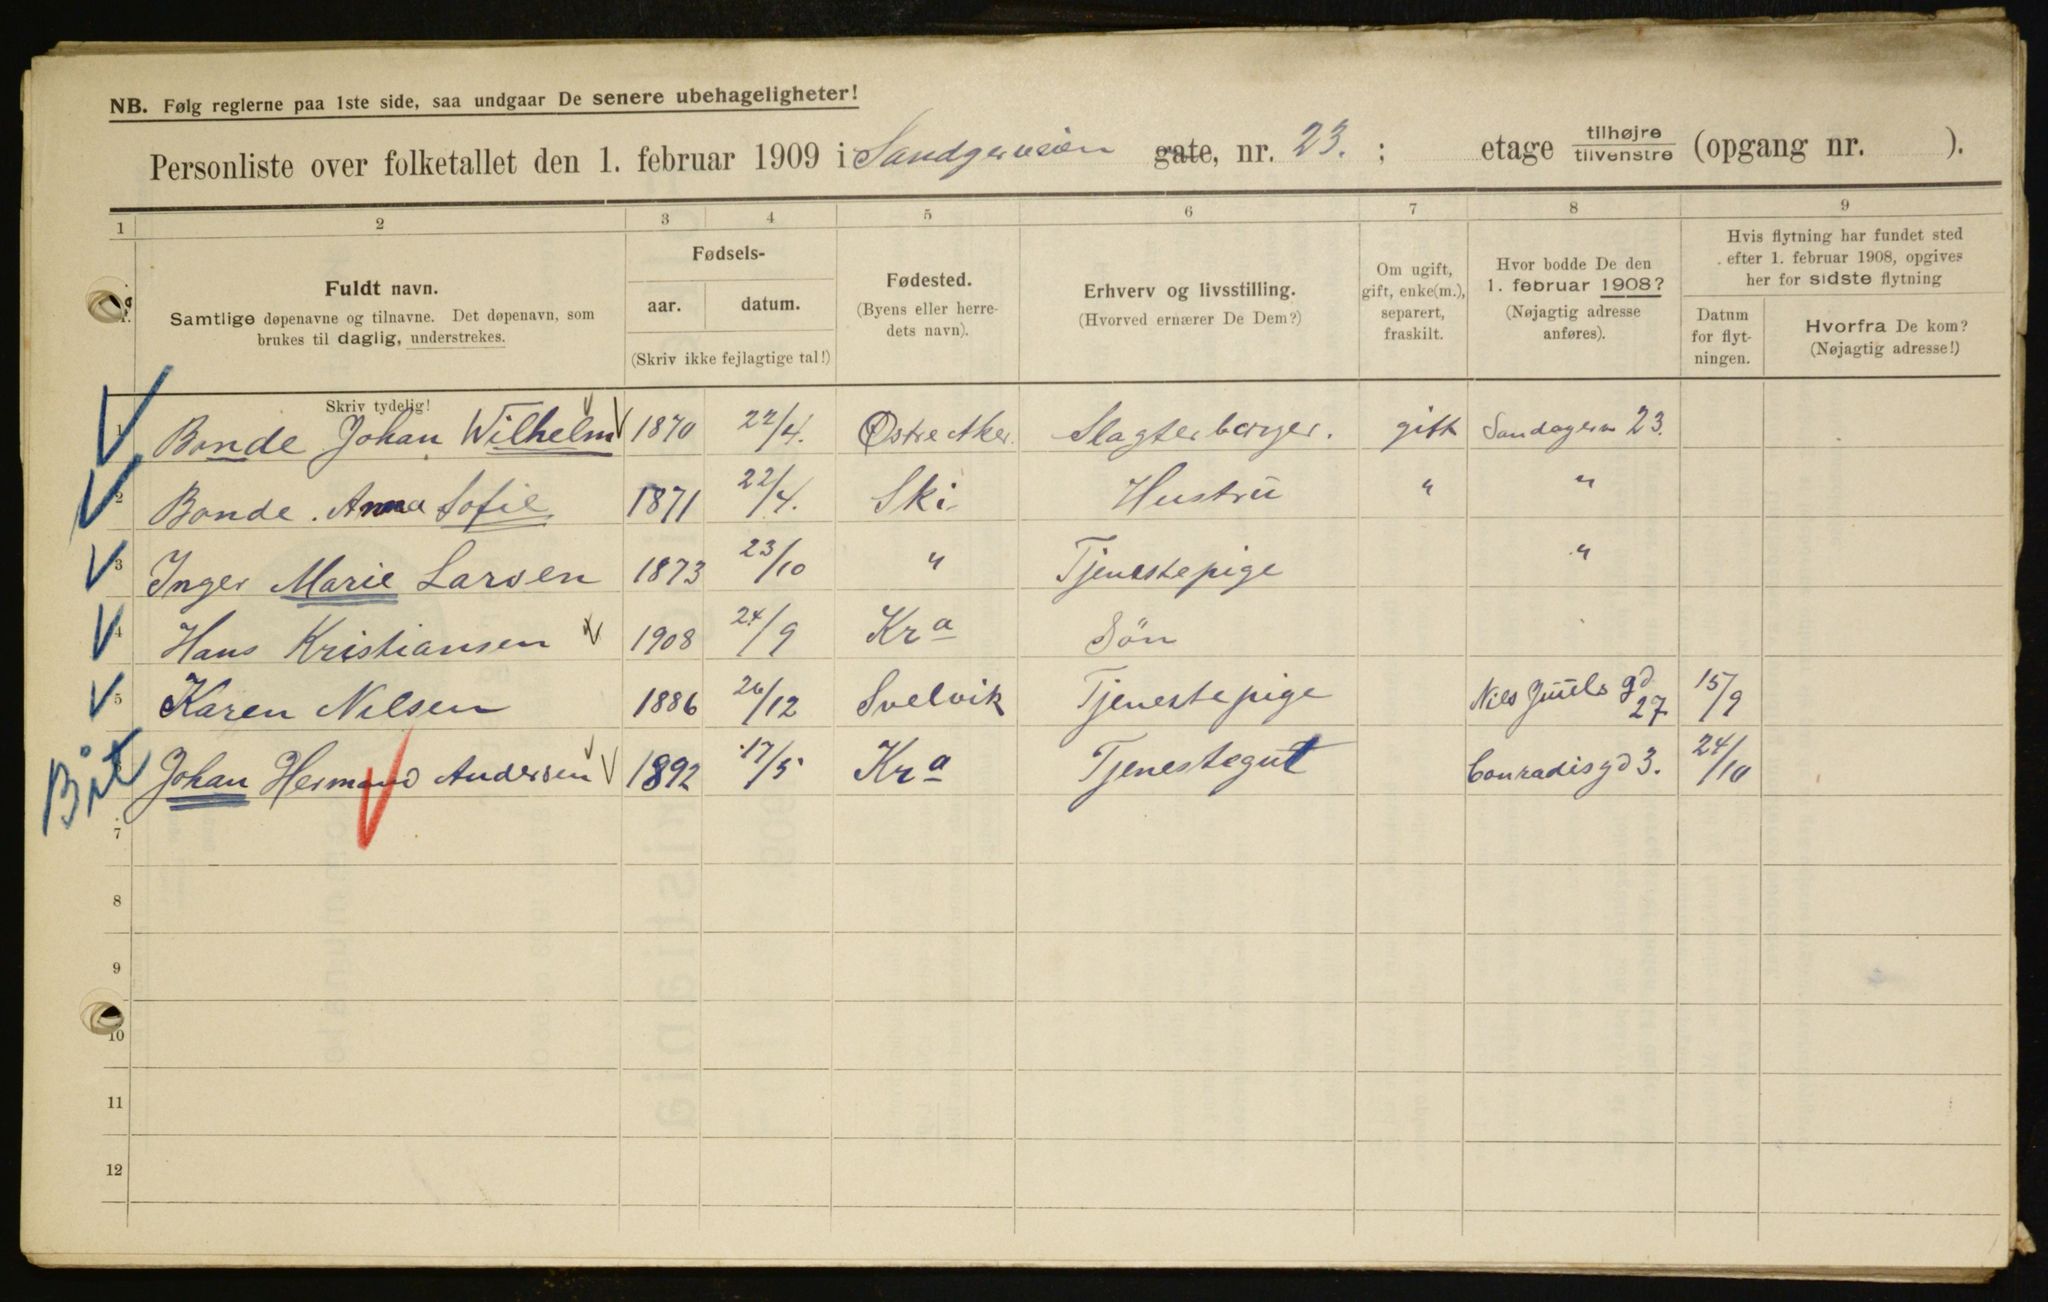 NB. Følg reglerne paa 1ste side, saa undgaar De senere ubehageligheter!
Personliste over folketallet den 1. februar 1909 i Sandgerveien gate, nr. 23. ; etage tilhøjre tilvenstre (opgang nr. ).
1 2 3 4 5 6 7 8 9
Fuldt navn.
Samtlige døpenavne og tilnavne. Det døpenavn, som
brukes til daglig, understrekes.
Skriv tydelig!
Fødsels-
aar. datum.
(Skriv ikke fejlagtige tal!)
Fødested.
(Byens eller herre-
dets navn).
Erhverv og livsstilling.
(Hvorved ernærer De Dem?)
Om ugift,
gift, enke(m.),
separert,
fraskilt.
Hvor bodde De den
1. februar 1908?
(Nøjagtig adresse
anføres).
Hvis flytning har fundet sted
efter 1. februar 1908, opgives
her for sidste flytning
Datum
for flyt-
ningen.
Hvorfra De kom?
(Nøjagtig adresse!)
1 Bonde Johan Wilhelm 1870 22/4. Østre Aker. Slagterborger. gift Sandagerv 23.
2 Bonde. Anna Sofie 1871 22/4. Ski Hustru " "
3 Inger Marie Larsen 1873 23/10 " Tjenestepige "
4 Hans Kristiansen 1908 24/9 Kra Søn
5 Karen Nilsen 1886 26/12 Svelvik Tjenestepige Nils Juuls gd 27 15/9
Johan Herman Andersen 1892 17/5 Kra Tjenestegut Conradisgd 3. 24/10
7
8
9
10
11
12